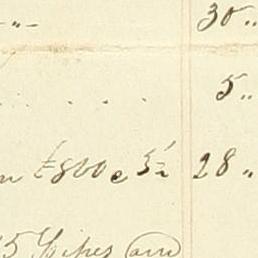 -"- 30"
. . . . 5"
£800 @ 3½ 28"
5 Pipes and